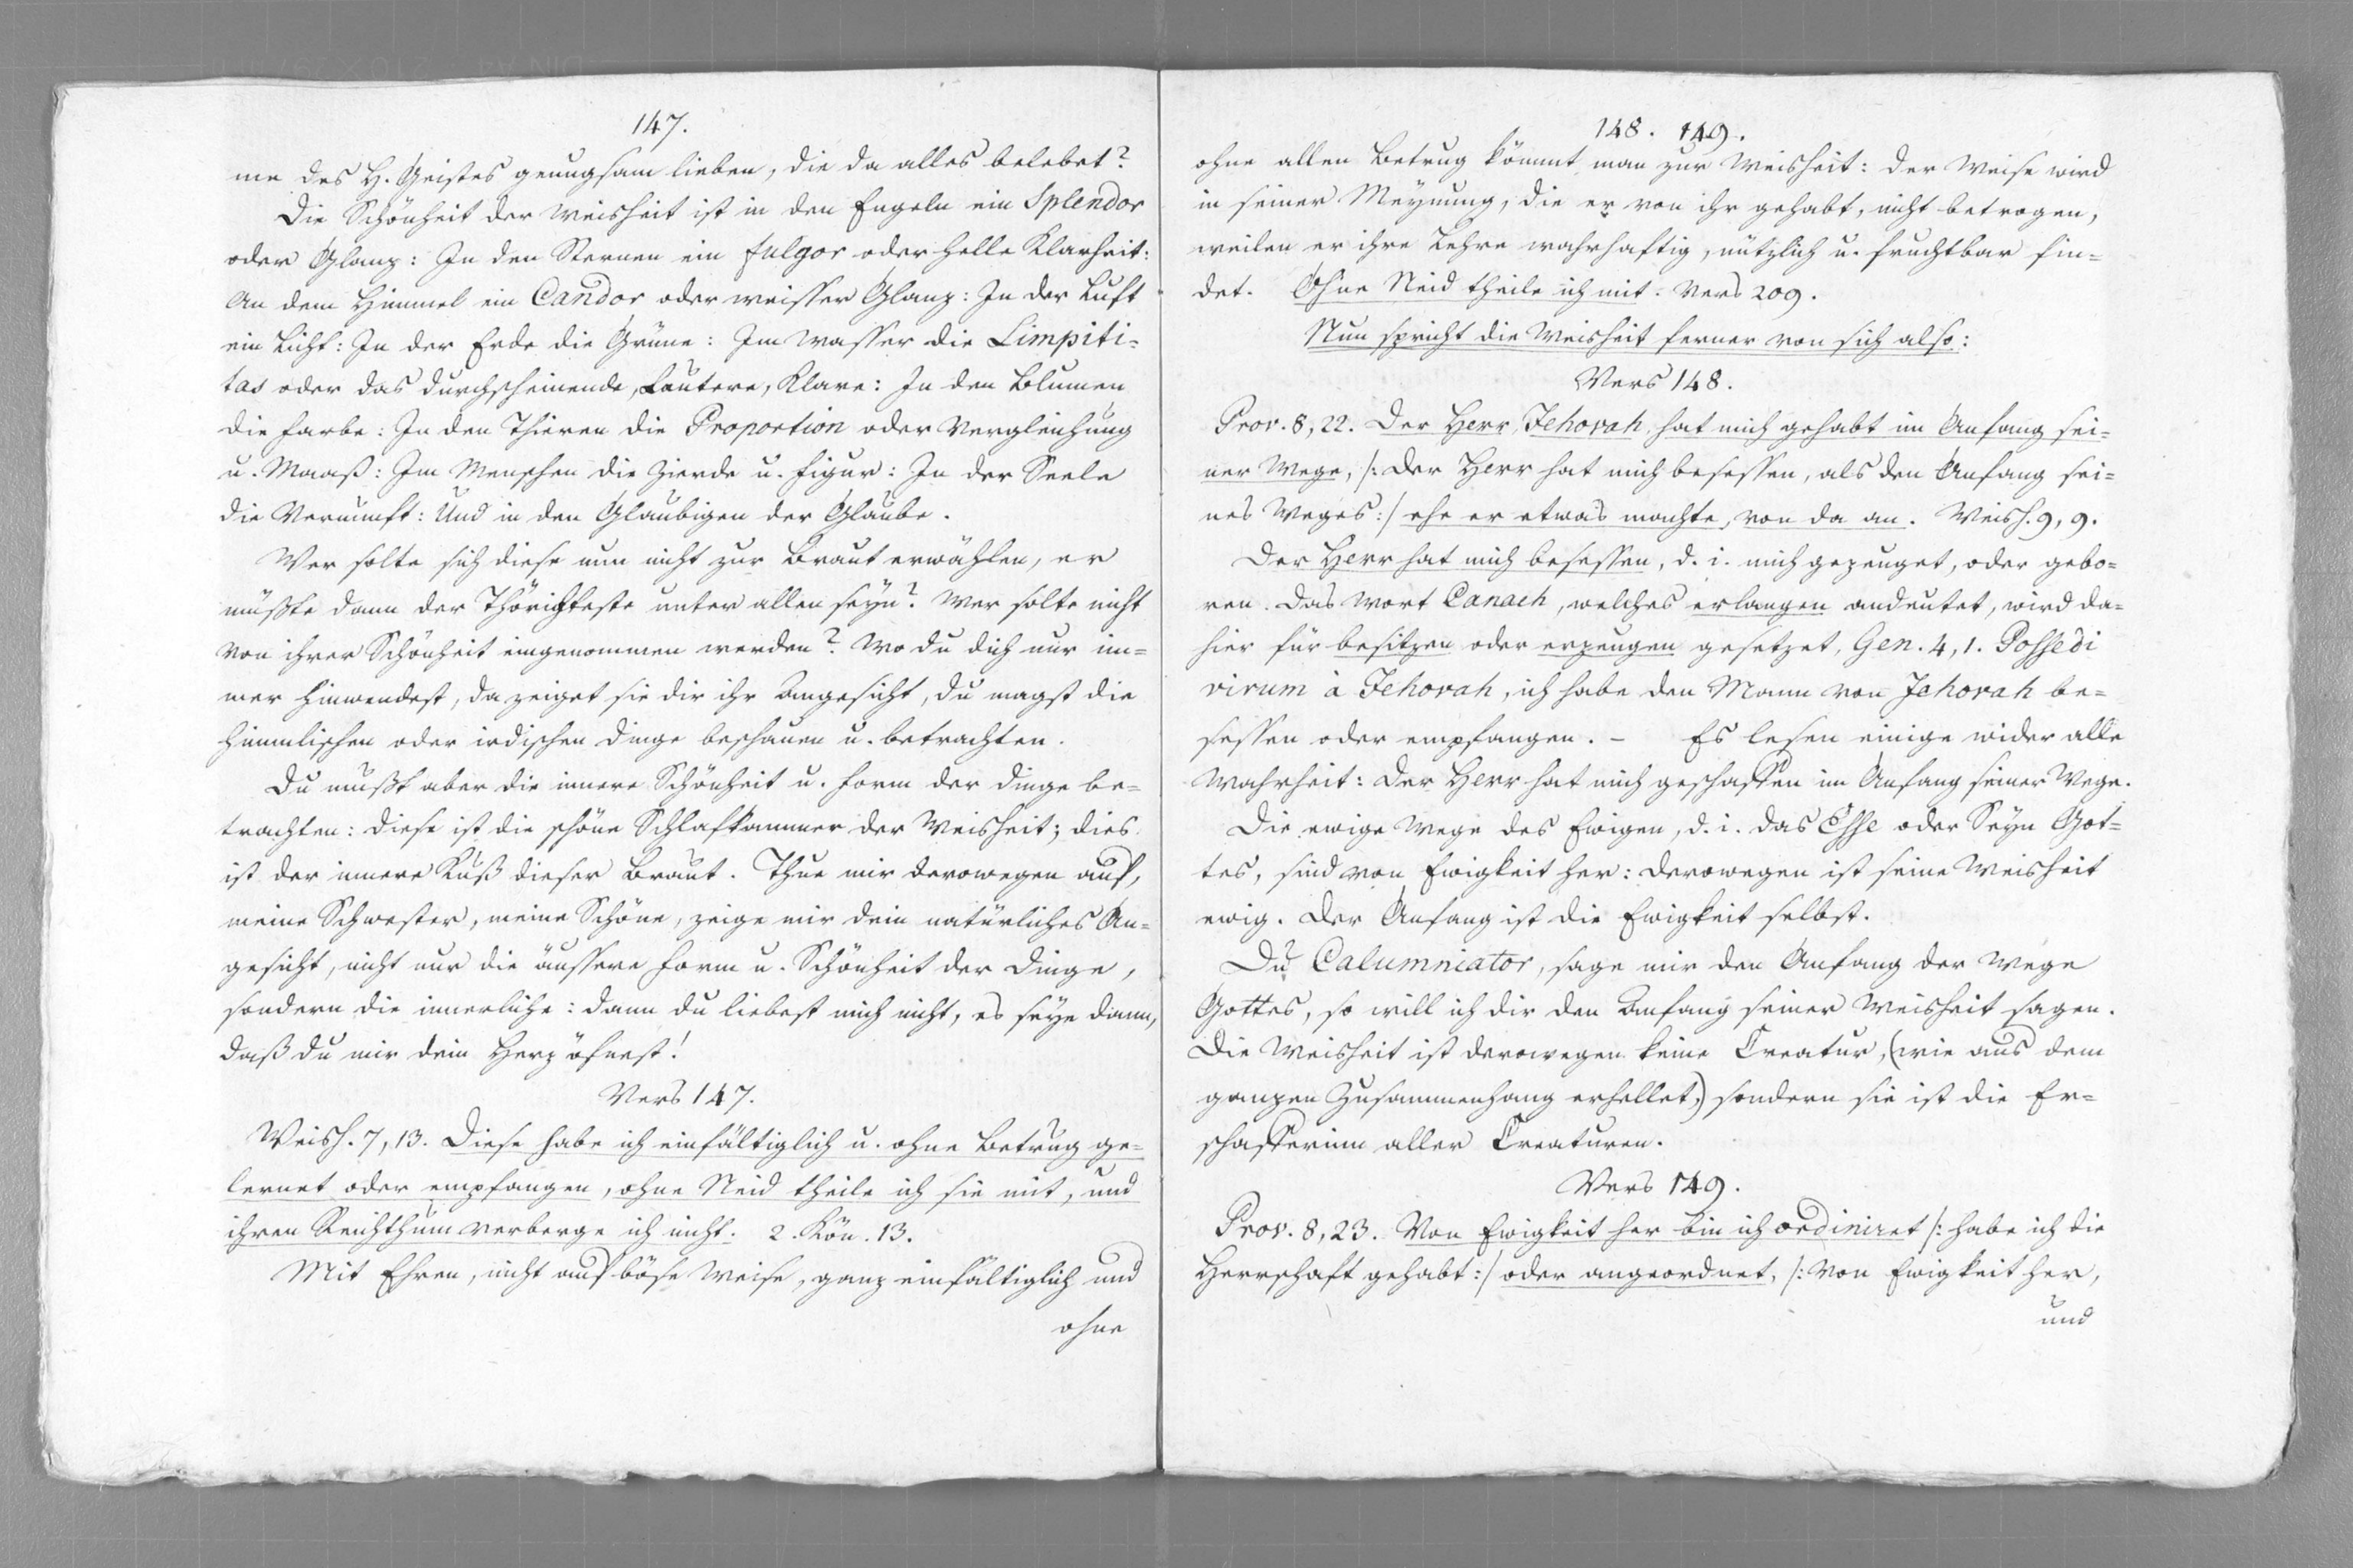 147.
me des H. Geistes genugsam lieben, die da alles belebet?
Die Schönheit der Weisheit ist in den Engeln ein Splendor
oder Glanz: In den Sternen ein fulgor oder helle Klarheit:
An dem Himmel ein Candor oder weisser Glanz: In der Luft
ein Licht: In der Erde die Grüne: Im Wasser die Limpiti-
tas oder das durchscheinende, Lautere, Klare: In den Blumen
die Farbe: In den Thieren die Proportion oder Vergleichung
u. Maaß: Im Menschen die Zierde u. Figur: In der Seele
die Vernunft: Und in den Glaubigen der Glaube.
Wer solte sich diese nun nicht zur Braut erwählen, er
müßte dann der Thörichteste unter allen seyn? Wer solte nicht
von ihrer Schönheit eingenommen werden? Wo du dich nur im-
mer hinwendest, da zeiget sie dir ihr Angesicht, du magst die
himmlischen oder irdischen Dinge beschauen u. betrachten.
Du mußt aber die innere Schönheit u. Form der Dinge be-
trachten: diese ist die schöne Schlafkammer der Weisheit; dies
ist der innere Kuß dieser Braut. Thue mir derowegen auf,
meine Schwester, meine Schöne, zeige mir dein natürliches An-
gesicht, nicht nur die äussere Form u. Schönheit der Dinge,
sondern die innerliche: dann du liebest mich nicht, es seye dann,
daß du mir dein Herz öfnest!
Vers 147.
Weish. 7, 13. Diese habe ich einfältiglich u. ohne Betrug ge-
lernet oder empfangen, ohne Neid theile ich sie mit, und
ihren Reichthum verberge ich nicht. 2. Kön. 13.
Mit Ehren, nicht auf böse Weise, ganz einfältiglich und
ohne
148. 149.
ohne allen Betrug kömmt man zur Weisheit: der Weise wird
in seiner Meynung, die er von ihr gehabt, nicht betrogen,
weilen er ihre Lehre wahrhaftig, nützlich u. fruchtbar fin-
det. Ohne Neid theile ich mit. Vers 209.
Nun spricht die Weisheit ferner von sich also:
Vers 148.
Prov. 8, 22. Der Herr, Jehovah, hat mich gehabt im Anfang sei-
ner Wege, /: Der Herr hat mich besessen, als den Anfang sei-
nes Weges :/ ehe er etwas machte, von da an. Weish. 9, 9.
Der Herr hat mich besessen, d. i. mich gezeuget, oder gebo-
ren. Das Wort Canach, welches erlangen andeutet, wird da-
hier für besitzen oder erzeugen gesetzet, Gen. 4, 1. Possedi
virum à Jehovah, ich habe den Mann von Jehovah be-
sessen oder empfangen. – Es lesen einige wider alle
Wahrheit: Der Herr hat mich geschaffen im Anfang seiner Wege.
Die ewige Wege des Ewigen, d. i. das Esse oder Seyn Got-
tes, sind von Ewigkeit her: derowegen ist seine Weisheit
ewig. Der Anfang ist die Ewigkeit selbst.
Du Calumniator, sage mir den Anfang der Wege
Gottes, so will ich dir den Anfang seiner Weisheit sagen.
Die Weisheit ist derowegen keine Creatur, (wie aus dem
ganzen Zusammenhang erhellet,) sondern sie ist die Er-
schafferinn aller Creaturen.
Vers 149.
Prov. 8, 23. Von Ewigkeit her bin ich ordiniret /: habe ich die
Herrschaft gehabt :/ oder angeordnet, /: Von Ewigkeit her,
und